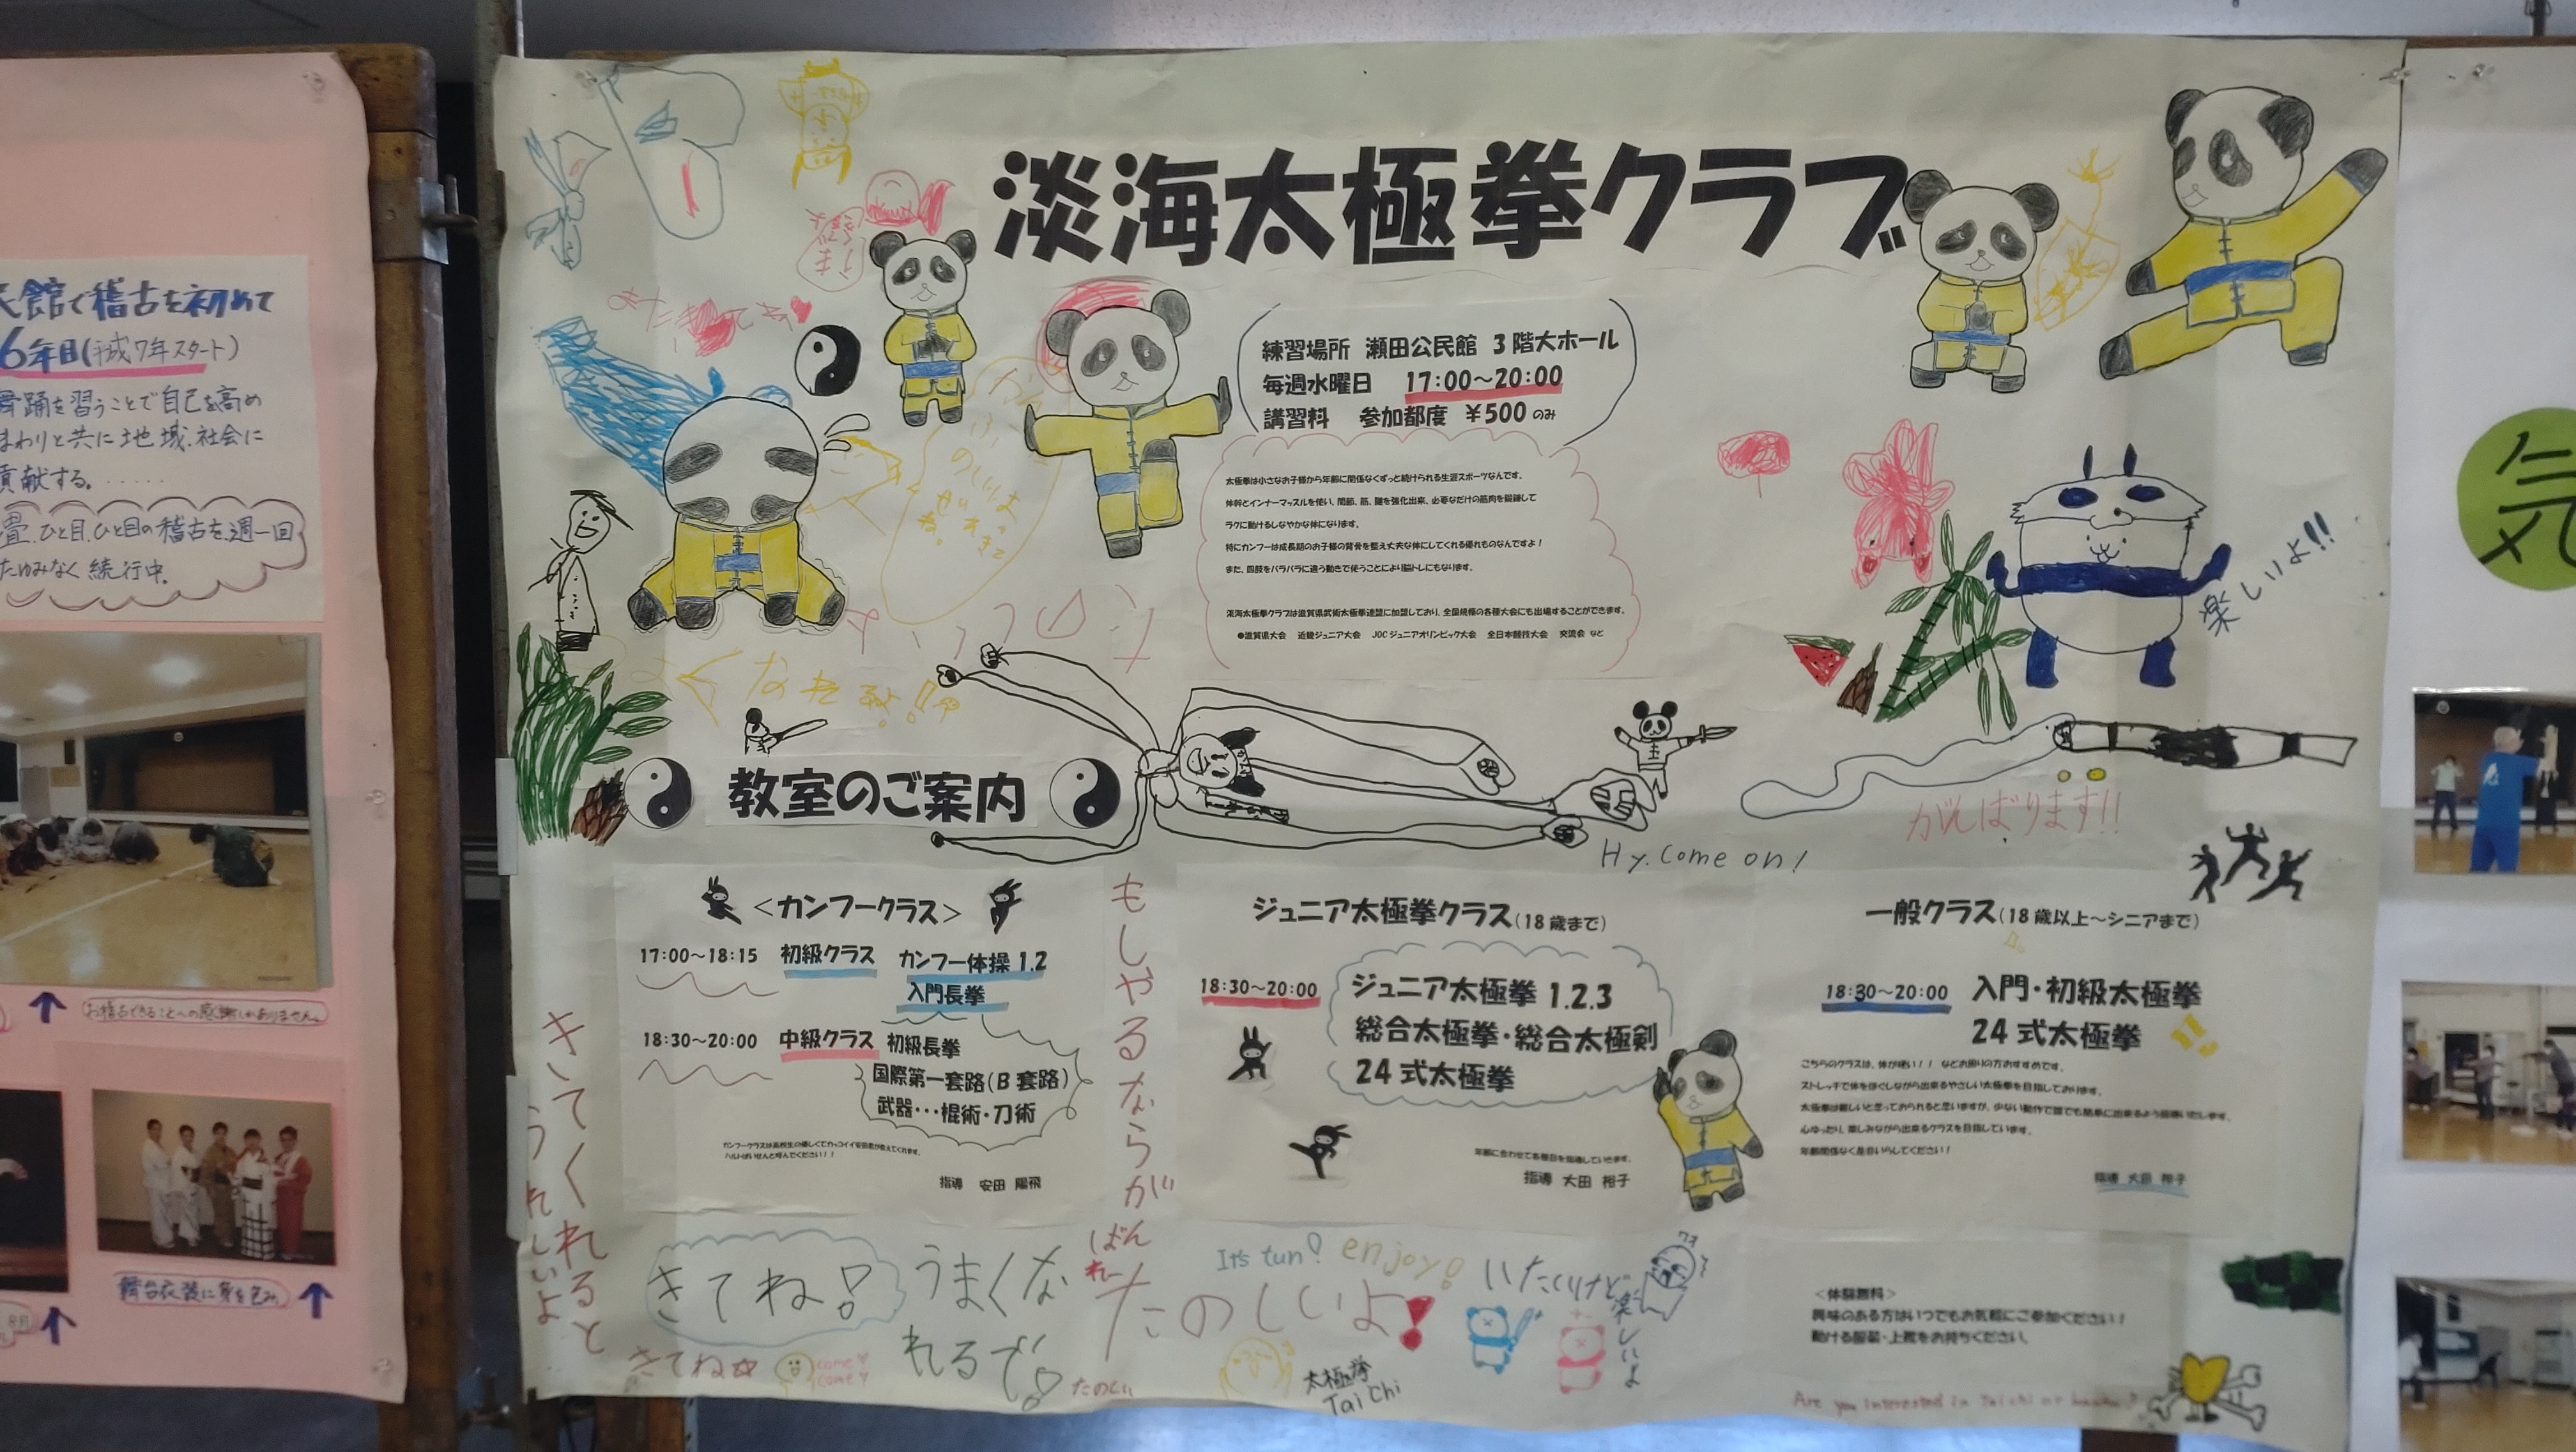 淡海太極拳クラブ
練習場所 瀬田公民館 3階大ホール
毎週水曜日 17:00～20:00
講習料 参加都度 ¥500のみ
太極拳は小さなお子様から年齢に関係なくずっと続けられる生涯スポーツなんです。
体幹とインナーマッスルを使い、関節、筋、腱を強化出来、必要なだけの筋肉を鍛錬して
ラクに動けるしなやかな体になります。
特にカンフーは成長期のお子様の背骨を整え丈夫な体にしてくれる優れものなんですよ！
また、四肢をバラバラに違う動きで使うことにより脳トレにもなります。
淡海太極拳クラブは滋賀県武術太極拳連盟に加盟しており、全国規模の各種大会にも出場することができます。
●滋賀県大会 近畿ジュニア大会 JOCジュニアオリンピック大会 全日本競技大会 交流会 など
楽しいよ!!
教室のご案内
Hy. Come on!
がんばります!!
＜カンフークラス＞
17:00～18:15 初級クラス カンフー体操1.2
入門長拳
18:30～20:00 中級クラス 初級長拳
国際第一套路(B套路)
武器･･･棍術･刀術
カンフークラスは高校生の優しくてカッコイイ安田君が教えてくれます。
指導 安田 陽飛
もしやるならがんばれー
ジュニア太極拳クラス(18歳まで)
18:30～20:00 ジュニア太極拳1.2.3
総合太極拳･総合太極剣
24式太極拳
年齢に合わせて各種目を指導していきます。
指導 大田 裕子
一般クラス(18歳以上～シニアまで)
18:30～20:00 入門･初級太極拳
24式太極拳
こちらのクラスは、体が硬い！！などお困りの方おすすめです。
ストレッチで体をほぐしながら出来るやさしい太極拳を目指しております。
心ゆったり、楽しみながら出来るクラスを目指しています。
年齢関係なく是非いらしてください！
指導 大田 裕子
きてくれると
うれしいよ
きてね!
うまくな
れるで!
たのしいよ!
It's fun! enjoy!
いたいけど
楽しいよ
きてね☆
come♡
come♡
たのしい
太極拳
Tai Chi
＜体験無料＞
興味のある方はいつでもお気軽にご参加ください！
動ける服装･上靴をお持ちください。
民館で稽古を初めて
6年目(平成7年スタート)
舞踊を習うことで自己を高め
まわりと共に地域.社会に
貢献する。.....
畳.ひと目.ひと目の稽古を週一回
たゆみなく続行中.
お稽古できることへの感謝しかありません。
舞台衣装に身を包み.
気